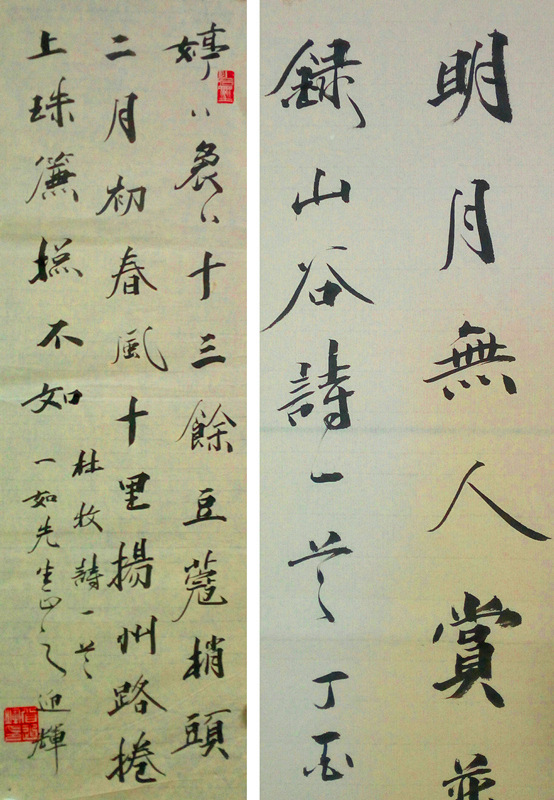 婷〻裊〻十三餘豆蔻梢頭
二月初春風十里揚州路捲
上珠簾摠不如
杜牧詩一首
一如先生正之 迎輝
明月無人賞
錄山谷詩一首 丁酉